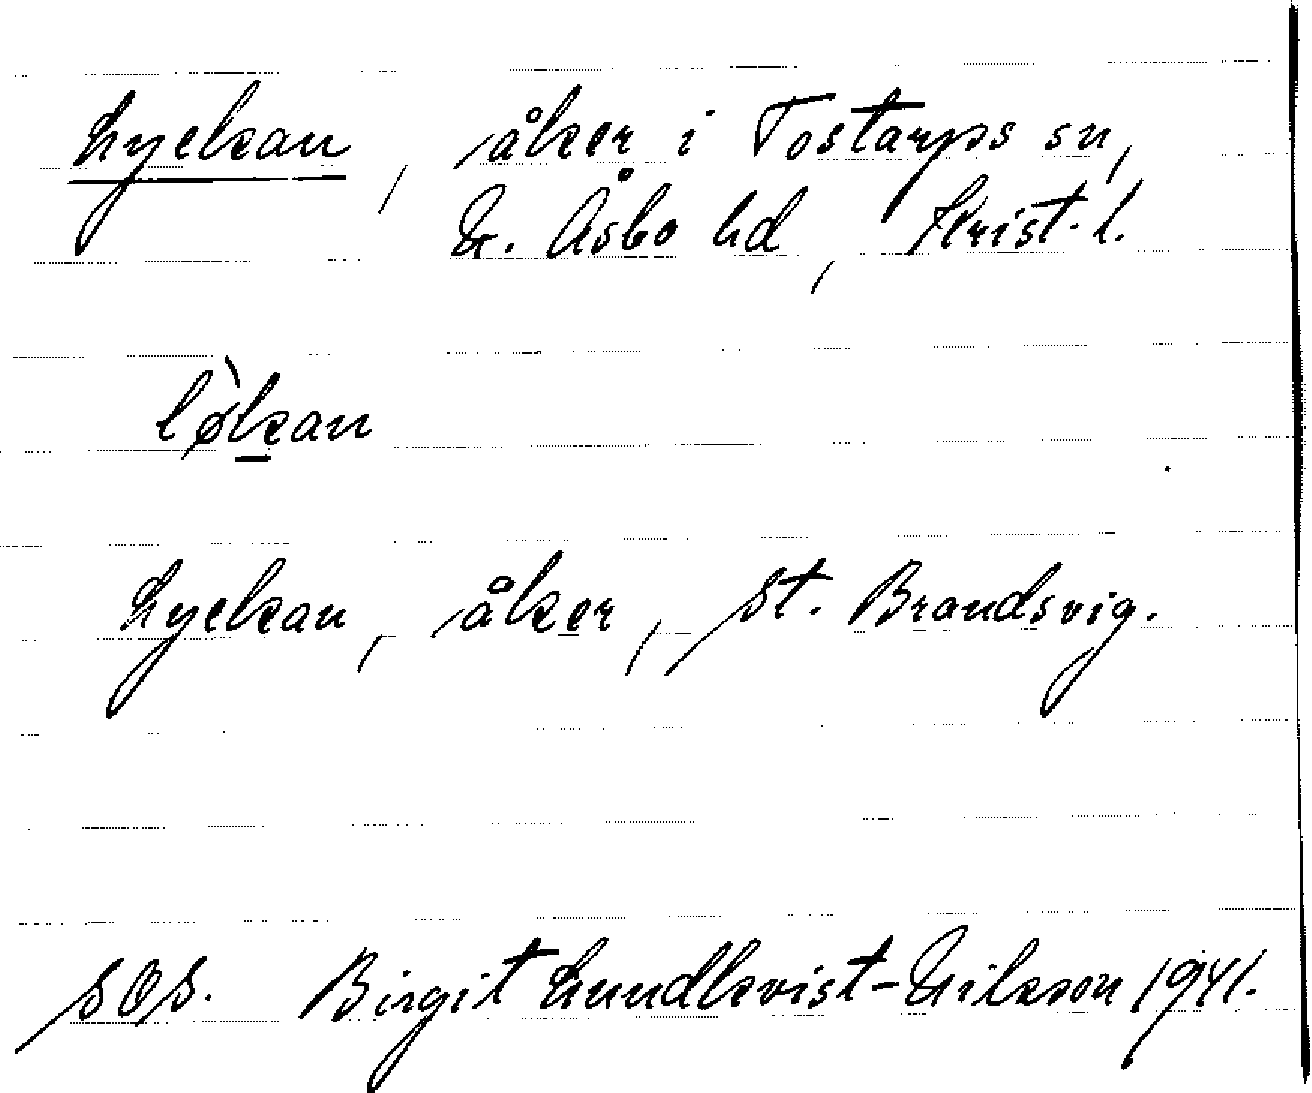 Lyckan, åker i Tostarps sn,
N. Åsbo hd, Krist. l.
lø̀kan
Lyckan, åker, St. Brandsvig.
SOS. Birgit Lundkvist-Nilsson 1941.